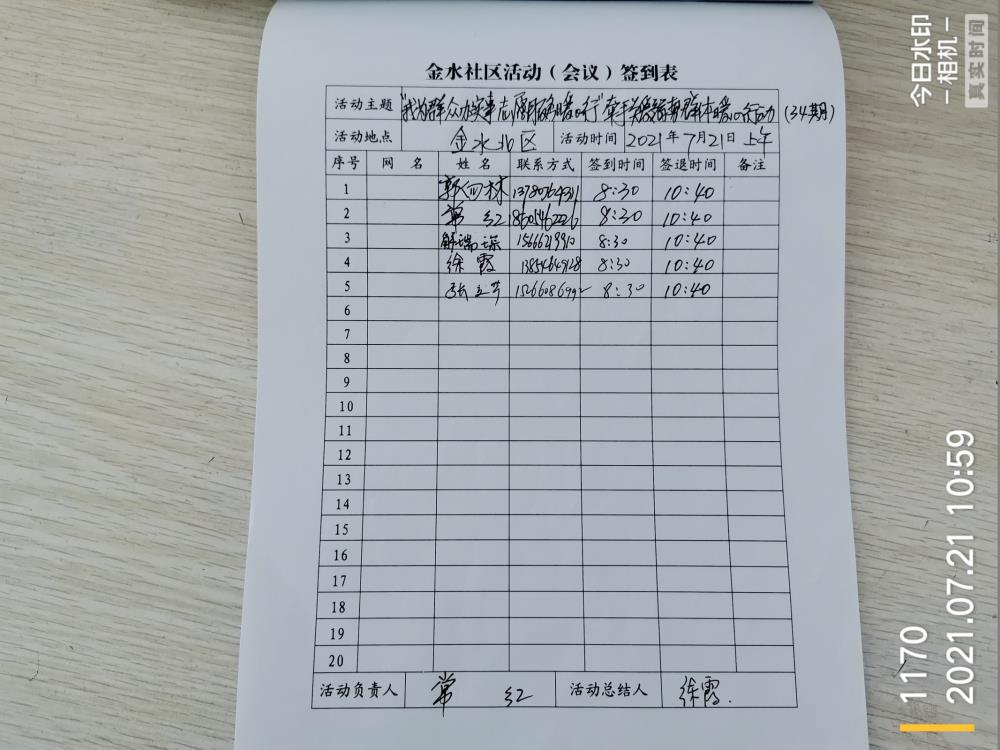 金水社区活动（会议）签到表
活动主题 "我为群众办实事志愿服务暖心行" 牵手关爱弱势群体暖心行动 (34期)
活动地点 金水北区 活动时间 2021年7月21日 上午
序号 网 名 姓 名 联系方式 签到时间 签退时间 备注
1 郭 林 8:30 10:40
2 常 红 8:30 10:40
3 解瑞 15666219910 8:30 10:40
4 徐霞 8:30 10:40
5 张立芳 8:30 10:40
6
7
8
9
10
11
12
13
14
15
16
17
18
19
20
活动负责人 常 红 活动总结人 徐霞.
今日水印
-相机-
真实时间
1170
2021.07.21 10:59